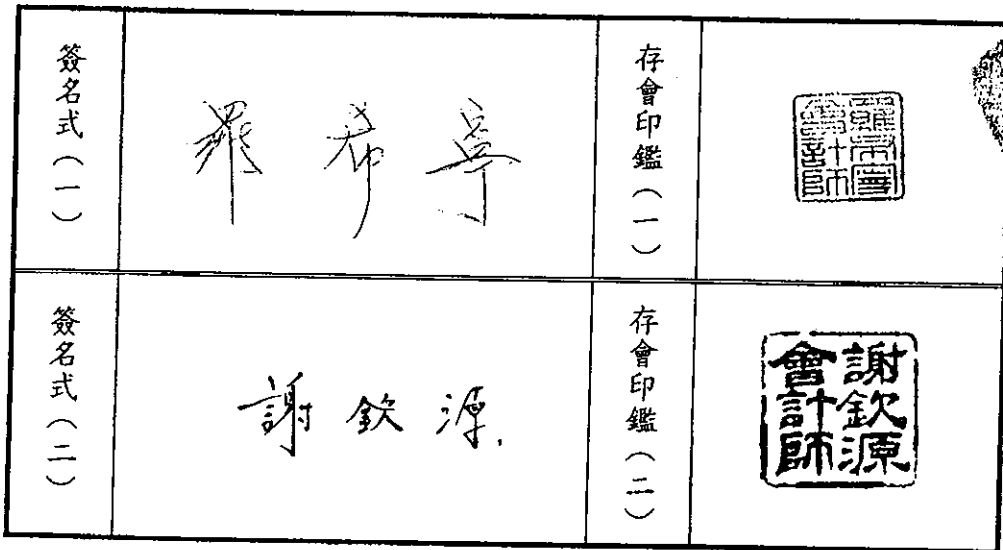 簽名式（一）
羅希寧
存會印鑑（一）
羅希寧會計師
簽名式（二）
謝欽源
存會印鑑（二）
謝欽源會計師